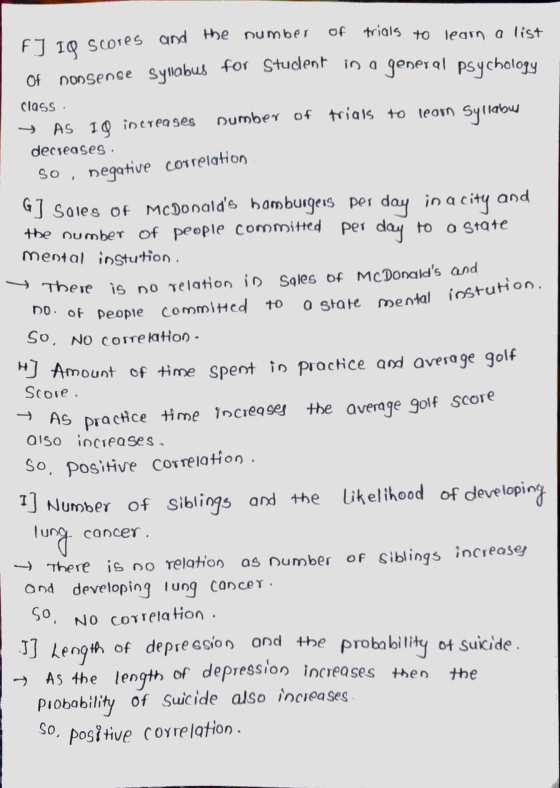 F] IQ scores and the number of trials to learn a list
of nonsense syllabus for student in a general psychology
class.
→ As IQ increases number of trials to learn syllabus
decreases.
So, negative correlation.
G] Sales of McDonald's hamburgers per day in a city and
the number of people committed per day to a state
mental instution.
→ There is no relation in sales of McDonald's and
no. of people committed to a state mental instution.
So, No correlation.
H] Amount of time spent in practice and average golf
score.
→ As practice time increases the average golf score
also increases.
So, positive correlation.
I] Number of siblings and the likelihood of developing
lung cancer.
→ There is no relation as number of siblings increases
and developing lung cancer.
So, No correlation.
J] Length of depression and the probability of suicide.
→ As the length of depression increases then the
probability of suicide also increases.
So, positive correlation.